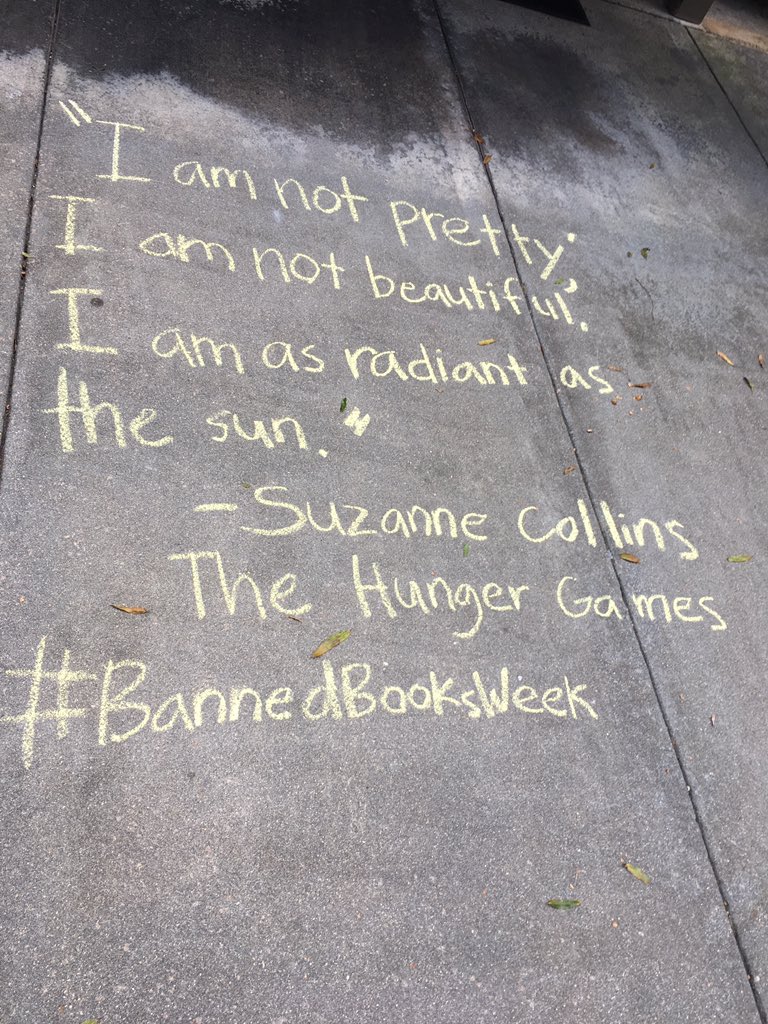 "I am not pretty.
I am not beautiful.
I am as radiant as
the sun."
-Suzanne Collins
The Hunger Games
#BannedBooksWeek